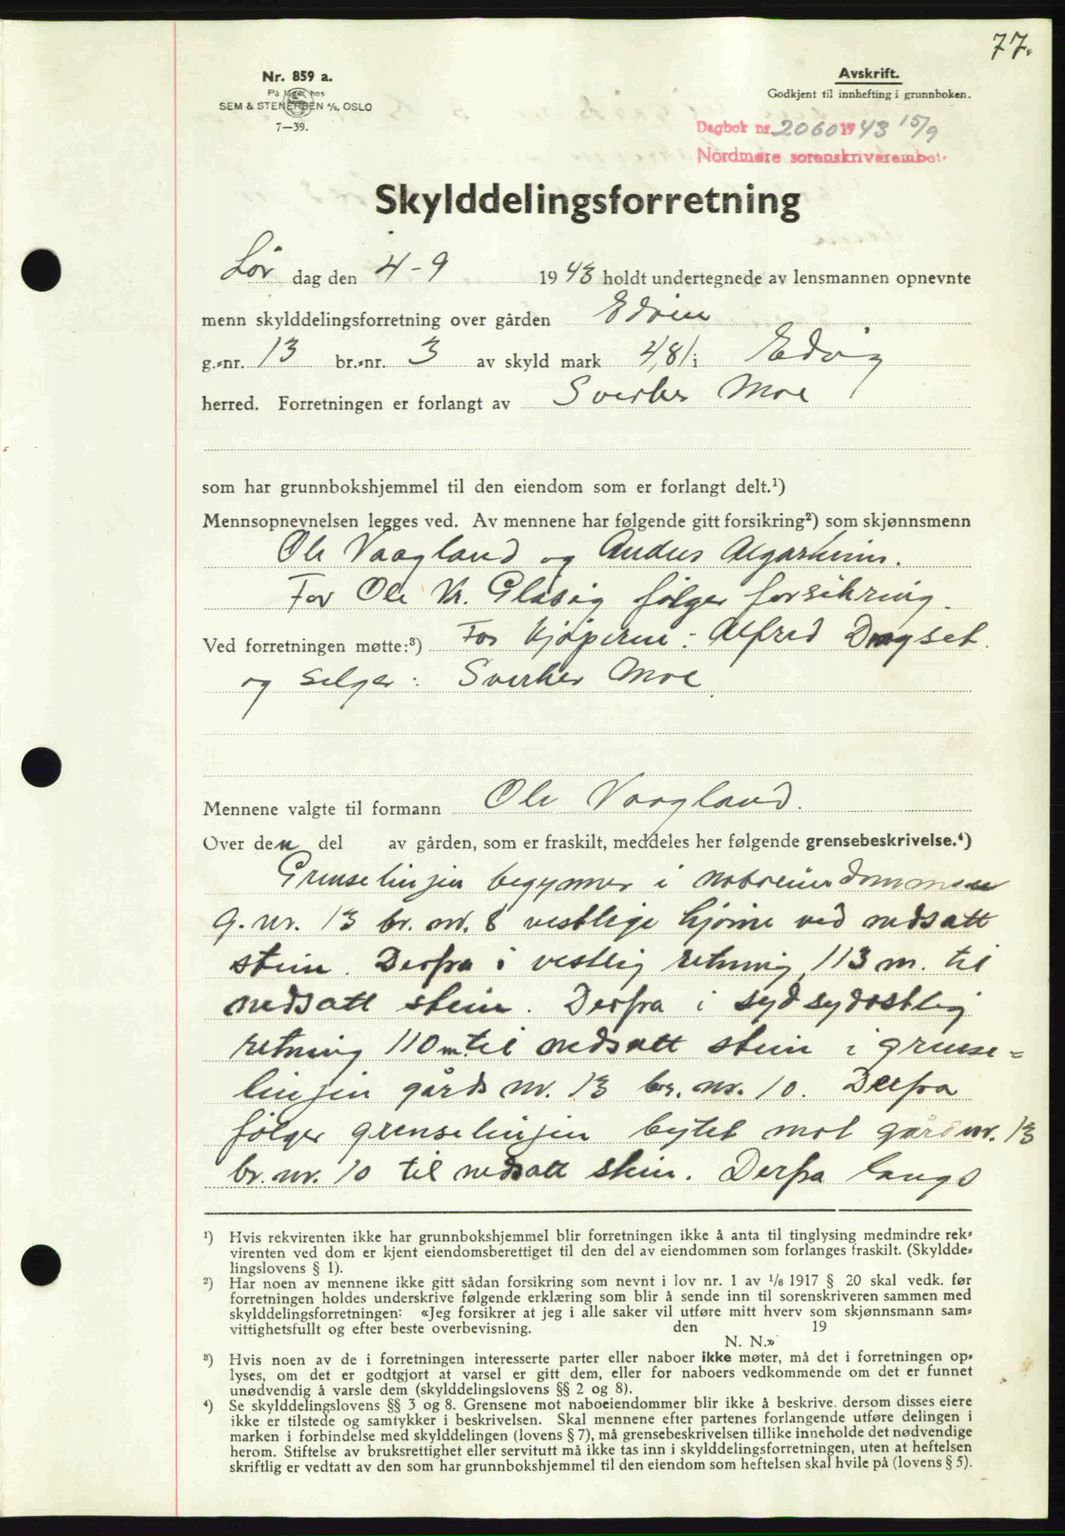 77.
Nr. 859 a.
På lager hos
SEM & STENERSEN A/S, OSLO
7—39.
Avskrift.
Godkjent til innhefting i grunnboken.
Dagbok nr. 2060 1943 15/9
Nordmøre sorenskriverembete
Skylddelingsforretning
Lør dag den 4-9 1943 holdt undertegnede av lensmannen opnevnte
menn skylddelingsforretning over gården Edvin
g.nr. 13 br.nr. 3 av skyld mark 4,81 i Edøy
herred. Forretningen er forlangt av Sverker Moe
som har grunnbokshjemmel til den eiendom som er forlangt delt.¹)
Mennsopnevnelsen legges ved. Av mennene har følgende gitt forsikring²) som skjønnsmenn
Ole Vaagland og Anders
For Ole Kr. Glåsøy følger forsikring.
Ved forretningen møtte:³) For kjøperen: Alfred Dragset.
og selger: Sverker Moe.
Mennene valgte til formann Ole Vaagland.
Over den del av gården, som er fraskilt, meddeles her følgende grensebeskrivelse.⁴)
Grenselinjen begynner i
g.nr. 13 br.nr. 8 vestlige hjørne ved nedsatt
stein. Derfra i vestlig retning 113 m. til
nedsatt stein. Derfra i sydsydøstlig
retning 110 m. til nedsatt stein i grense=
linjen gårds nr. 13 br. nr. 10. Derfra
følger grenselinjen bytet mot gårdnr. 13
br. nr. 10 til nedsatt stein. Derfra langs
¹) Hvis rekvirenten ikke har grunnbokshjemmel blir forretningen ikke å anta til tinglysing medmindre rek-
virenten ved dom er kjent eiendomsberettiget til den del av eiendommen som forlanges fraskilt. (Skyldde-
lingslovens § 1).
²) Har noen av mennene ikke gitt sådan forsikring som nevnt i lov nr. 1 av 1/6 1917 § 20 skal vedk. før
forretningen holdes underskrive følgende erklæring som blir å sende inn til sorenskriveren sammen med
skylddelingsforretningen: «Jeg forsikrer at jeg i alle saker vil utføre mitt hverv som skjønnsmann sam-
vittighetsfullt og efter beste overbevisning. den 19
N. N.»
³) Hvis noen av de i forretningen interesserte parter eller naboer ikke møter, må det i forretningen op-
lyses, om det er godtgjort at varsel er gitt dem, eller for naboers vedkommende om det er funnet
unødvendig å varsle dem (skylddelingslovens §§ 2 og 8).
⁴) Se skylddelingslovens §§ 3 og 8. Grensene mot naboeiendommer blir ikke å beskrive, dersom disses eiere
ikke er tilstede og samtykker i beskrivelsen. Skal mennene efter partenes forlangende utføre delingen i
marken i forbindelse med skylddelingen (lovens § 7), må grensebeskrivelsen tillike inneholde det nødvendige
herom. Stiftelse av bruksrettighet eller servitutt må ikke tas inn i skylddelingsforretningen, uten at heftelsen
skriftlig er vedtatt av den som har grunnbokshjemmel til den eiendom som heftelsen skal hvile på (lovens § 5).